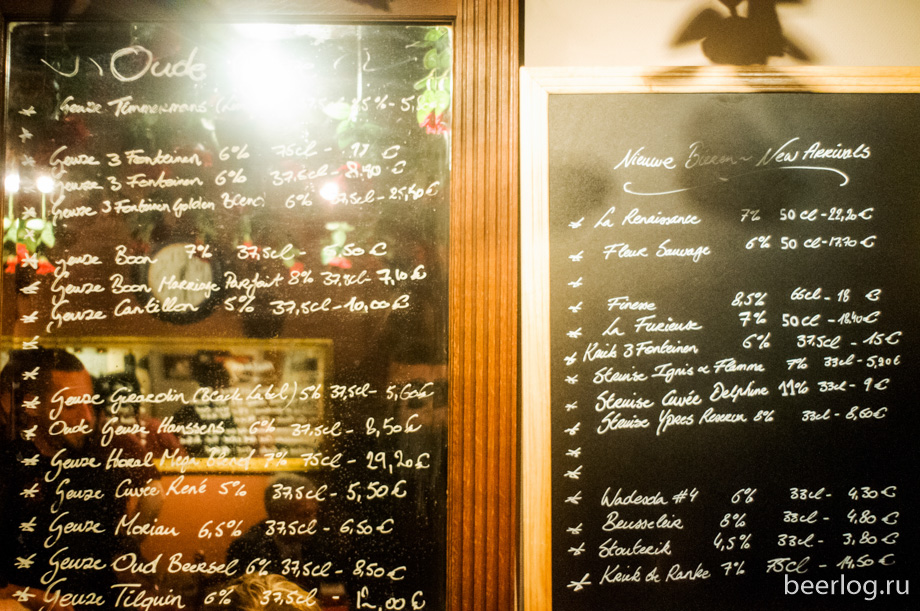 Oude
Geuze Timmermans
Geuze 3 Fonteinen 6% 75cl - 17 €
Geuze 3 Fonteinen 6% 37,5cl - 8,40 €
Geuze 3 Fonteinen Golden Blend 6% 37,5cl - 25,50 €
Geuze Boon 7% 37,5cl - 5,50 €
Geuze Boon Marriage Parfait 8% 37,5cl - 7,10 €
Geuze Cantillon 5% 37,5cl - 10,00 €
Geuze Girardin (Black Label) 5% 37,5cl - 5,60 €
Oude Geuze Hanssens 6% 37,5cl - 8,50 €
Geuze Horal Mega Blend 7% 75cl - 29,20 €
Geuze Cuvée René 5% 37,5cl - 5,50 €
Geuze Moriau 6,5% 37,5cl - 6,50 €
Geuze Oud Beersel 6% 37,5cl - 8,50 €
Geuze Tilquin 6% 37,5cl - 12,00 €
Nieuwe Bieren - New Arrivals
La Renaissance 7% 50 cl - 22,20 €
Fleur Sauvage 6% 50 cl - 17,70 €
Finesse 8,5% 66cl - 18 €
La Furieuse 7% 50cl - 18,40 €
Kriek 3 Fonteinen 6% 37,5cl - 15 €
Struise Ignis & Flamma 7% 33cl - 5,90 €
Struise Cuvée Delphine 11% 33cl - 9 €
Struise Ypres Reserva 8% 33cl - 8,60 €
Wadesda #4 6% 33cl - 4,30 €
Beusseleir 8% 33cl - 4,80 €
Stouterik 4,5% 33cl - 3,80 €
Kriek de Ranke 7% 75cl - 14,50 €
beerlog.ru